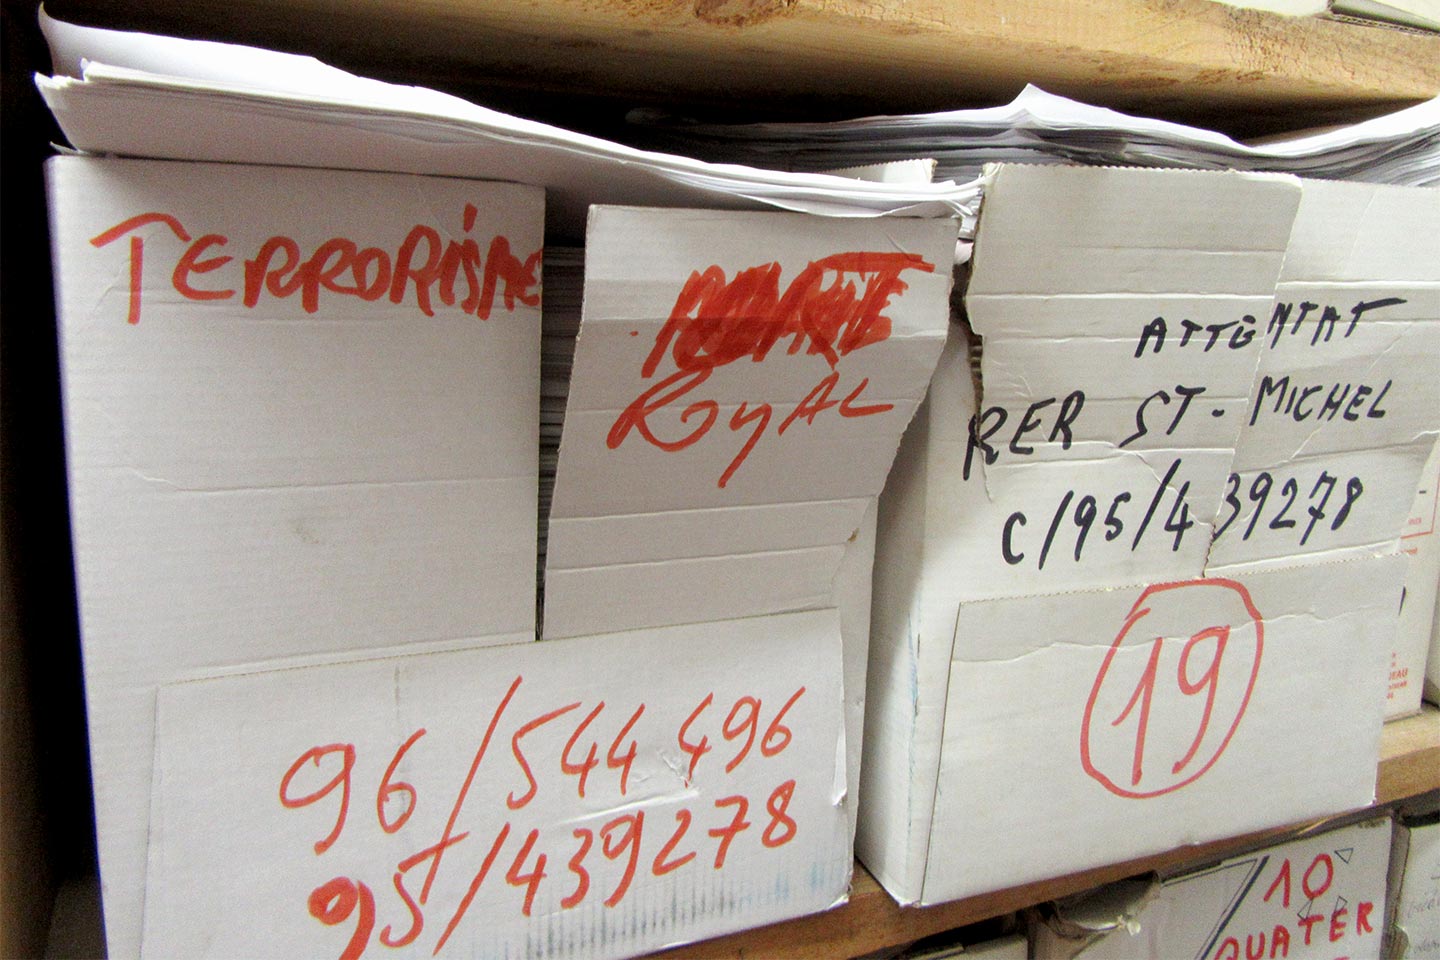 TERRORISME
ROYAL
96/544 496
95/439278
ATTENTAT
RER ST-MICHEL
C/95/439278
19
10
QUATER